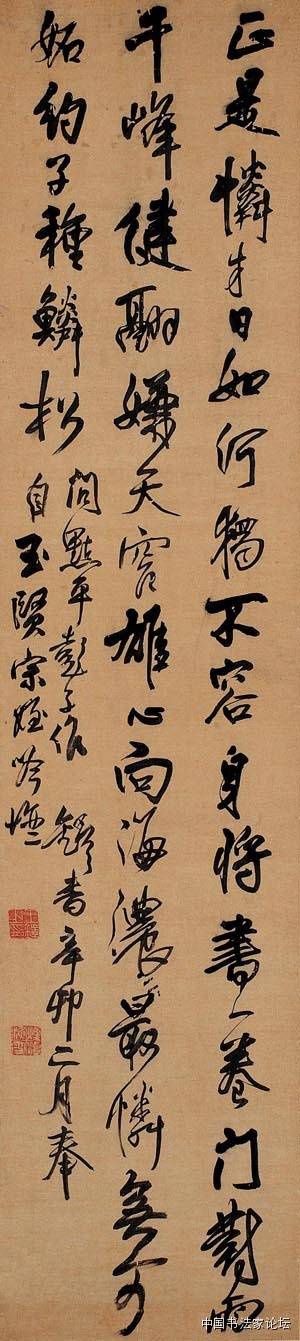 正是憐才日如何獨不容身將書一卷門對雪
千峰健翮嫌天窄雄心向海濃最憐無可
妬約子種鱗松
問平彭子作 鐸書辛卯二月奉
自玉賢宗侄吟壇
中国书法家论坛